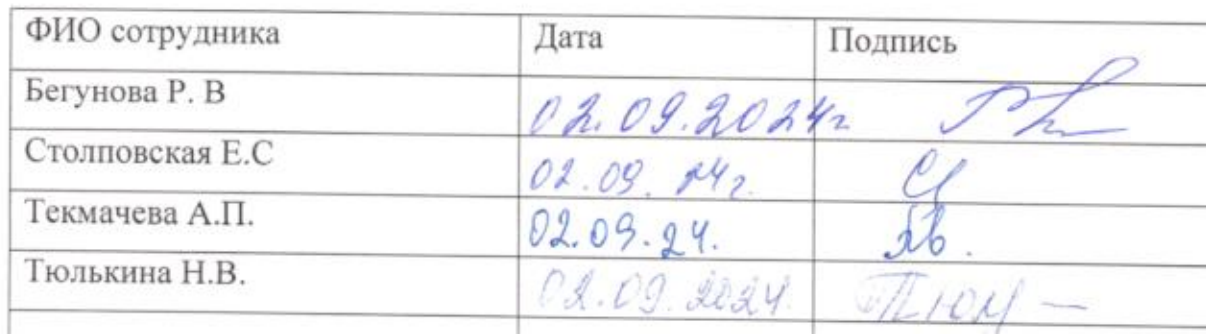 ФИО сотрудника Дата Подпись
Бегунова Р. В 02.09.2024г
Столповская Е.С 02.09.24г.
Текмачева А.П. 02.09.24.
Тюлькина Н.В. 02.09.2024.